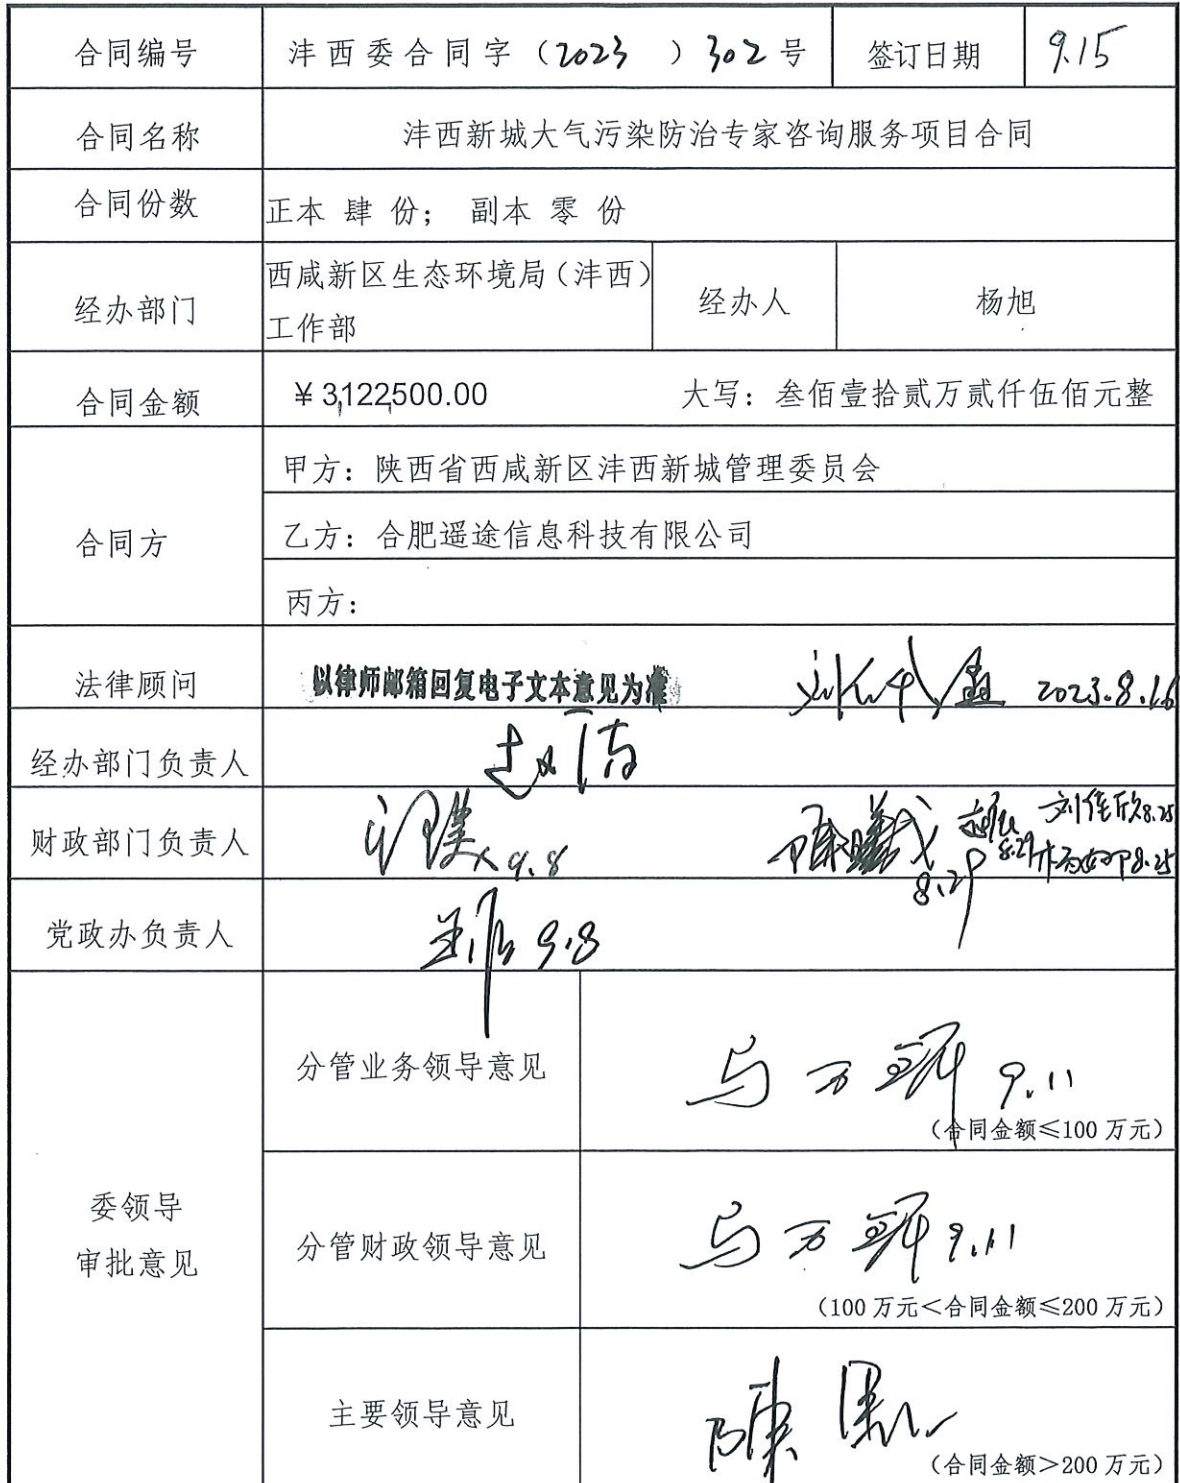 合同编号 沣西委合同字（2023 ）302号 签订日期 9.15
合同名称 沣西新城大气污染防治专家咨询服务项目合同
合同份数 正本 肆 份； 副本 零 份
经办部门 西咸新区生态环境局（沣西）
工作部 经办人 杨旭
合同金额 ¥3,122,500.00 大写：叁佰壹拾贰万贰仟伍佰元整
合同方
甲方：陕西省西咸新区沣西新城管理委员会
乙方：合肥遥途信息科技有限公司
丙方：
法律顾问 以律师邮箱回复电子文本意见为准 2023.8.16
经办部门负责人
财政部门负责人 9.8 8.29 8.29 刘佳欣8.25
8.25
党政办负责人 9.8
委领导
审批意见
分管业务领导意见 9.11
（合同金额≤100万元）
分管财政领导意见 9.11
（100万元＜合同金额≤200万元）
主要领导意见
（合同金额＞200万元）